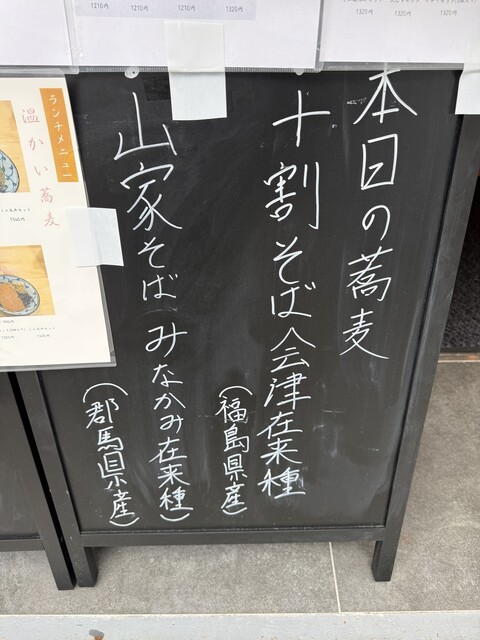 本日の蕎麦
十割そば会津在来種
(福島県産)
山家そば(みなかみ在来種)
(郡馬県小産)
ランチメニュー
温かい蕎麦
1210円
1210円
1210円
1320円
1320円
1320円
1320円